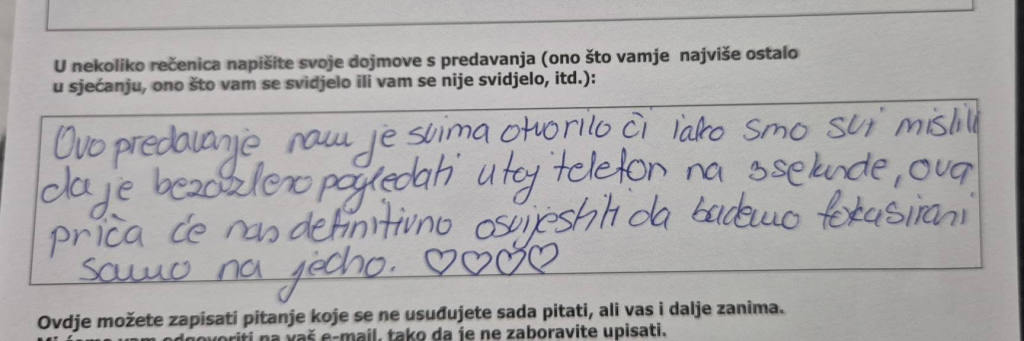 U nekoliko rečenica napišite svoje dojmove s predavanja (ono što vamje najviše ostalo
u sjećanju, ono što vam se svidjelo ili vam se nije svidjelo, itd.):
Ovo predavanje nam je svima otvorilo oči iako smo svi mislili
da je bezazleno pogledati u taj telefon na 3 sekunde, ova
priča će nas definitivno osvijestiti da budemo fokusirani
samo na jedno. ♡♡♡♡
Ovdje možete zapisati pitanje koje se ne usuđujete sada pitati, ali vas i dalje zanima.
Mi ćemo vam odgovoriti na vaš e-mail, tako da je ne zaboravite upisati.